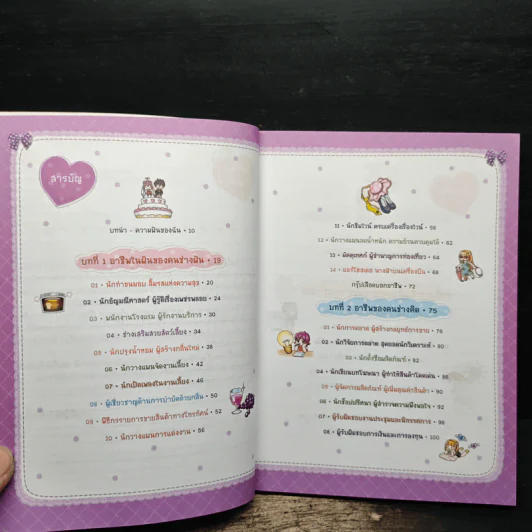 สารบัญ
บทนำ - ความฝันของฉัน • 10
บทที่ 1 อาชีพในฝันของคนช่างฝัน • 19
01 • นักทำขนมอบ ลิ้มรสแห่งความสุข • 20
02 • นักอัญมณีศาสตร์ ผู้รู้ดีเรื่องเพชรพลอย • 24
03 • พนักงานโรงแรม ผู้รักงานบริการ • 30
04 • ช่างเสริมสวยสัตว์เลี้ยง • 34
05 • นักปรุงน้ำหอม ผู้สร้างกลิ่นใหม่ • 38
06 • นักวางแผนจัดงานเลี้ยง • 42
07 • นักเปิดเพลงในงานเลี้ยง • 46
08 • ผู้เชี่ยวชาญด้านการบำบัดด้วยกลิ่น • 50
09 • พิธีกรรายการขายสินค้าทางโทรทัศน์ • 52
10 • นักวางแผนการแต่งงาน • 56
11 • นักชิมไวน์ ครบเครื่องเรื่องไวน์ • 58
12 • นักวางแผนลดน้ำหนัก ความอ้วนควบคุมได้ • 62
13 • มัคคุเทศก์ ผู้ชำนาญการท่องเที่ยว • 64
14 • แอร์โฮสเตส นางฟ้าบนเครื่องบิน • 68
กรุ๊ปเลือดบอกอาชีพ • 72
บทที่ 2 อาชีพของคนช่างคิด • 75
01 • นักการตลาด ผู้สร้างกลยุทธ์การขาย • 76
02 • นักวิจัยการตลาด สุดยอดนักวิเคราะห์ • 80
03 • นักตั้งชื่อผลิตภัณฑ์ • 82
04 • นักเขียนบทโฆษณา ผู้ทำให้สินค้าโดดเด่น • 86
05 • ผู้จัดการผลิตภัณฑ์ ผู้เพิ่มคุณค่าสินค้า • 90
06 • นักช็อปปริศนา ผู้สำรวจความพึงพอใจ • 94
07 • ผู้รับผิดชอบงานประชุมและนิทรรศการ • 98
08 • ผู้รับผิดชอบการเงินและการลงทุน • 100